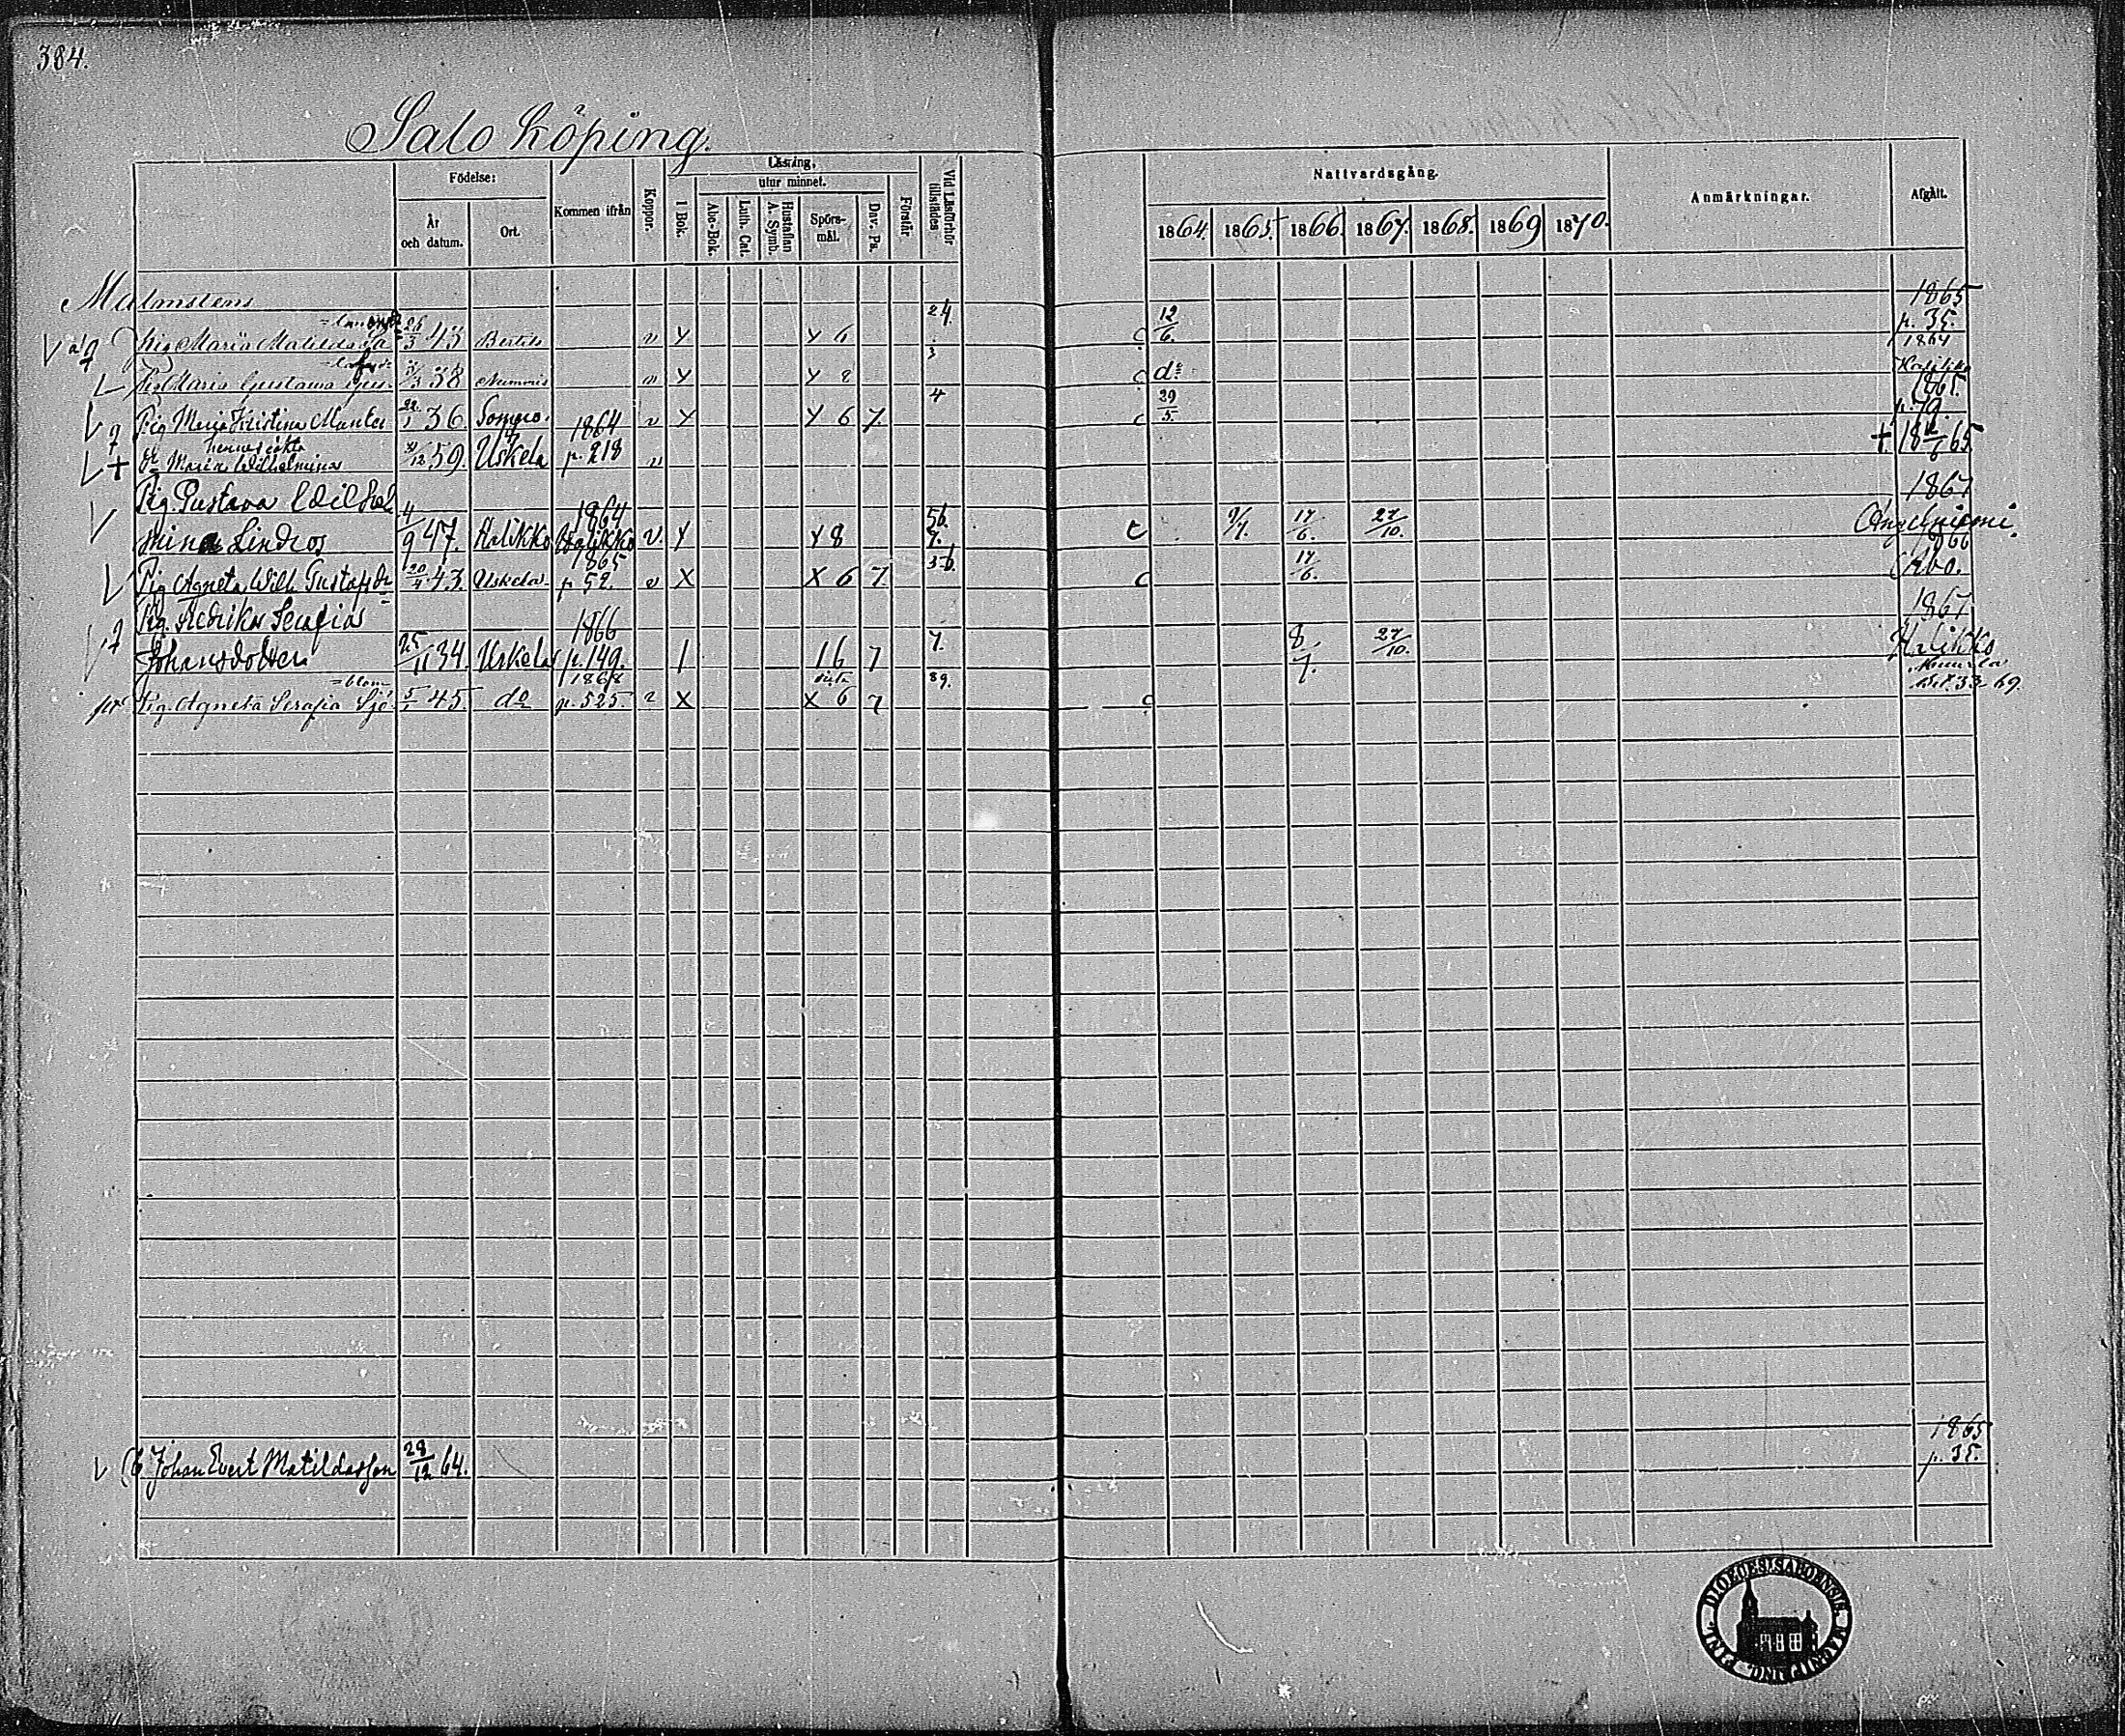 384.
Salo Köping.
Födelse: Läsning, Nattvardsgång.
utur minnet.
År och datum. Ort. Kommen ifrån Koppor. I Bok. Abc-Bok. Luth. Cat. Hustaflan A. Symb. Spörsmål. Dav. Ps. Förstår. Vid Läsförhör tillstädes 1864. 1865. 1866. 1867. 1868. 1869 1870. Anmärkningar. Afgått.
Malmstens
24. 12/6. 1865 p. 35.
Pig Maria Matilda 26/3 43 Bertils v Y Y 6 C
1864 Halikko
Pig Maria Gustava 38 Nummis v Y Y 8 C do
4 29/5. 1865. p. 79.
Pig Maria Kristina Manter 22/1 36. Somero. v Y Y 6 7. C
hennes oäkta 1864
dr Maria Wilhelmina 12 59. Uskela p. 218 v † 18 65.
Pig. Gustava Wilhel 1867
mina Lindros 4/9 47. Halikko 1864 Halikko v. Y Y 8 56. 7. C 9/7. 17/6. 27/10. Angelniemi.
1865 1866
Pig Agneta Wilh. Gustafsdr 20/4 43. Uskela p 52. v X X 6 7. C 17/6. Åbo.
Pig. Fredrika Serafia 1866 1867
Johansdotter 25/11 34. Uskela p. 149. 1 1 6 7 7. 8/7. 27/10. Halikko
=blom 1868 89.
Pig. Agneta Serafia Sjö 5/1 45. do p. 525. v X X 6 7 C 33 69.
1865
Johan Evert Matildasson 28/12 64. p. 35.
DIOECESIS ABOENSIS MAGNI P. ING. FINL.